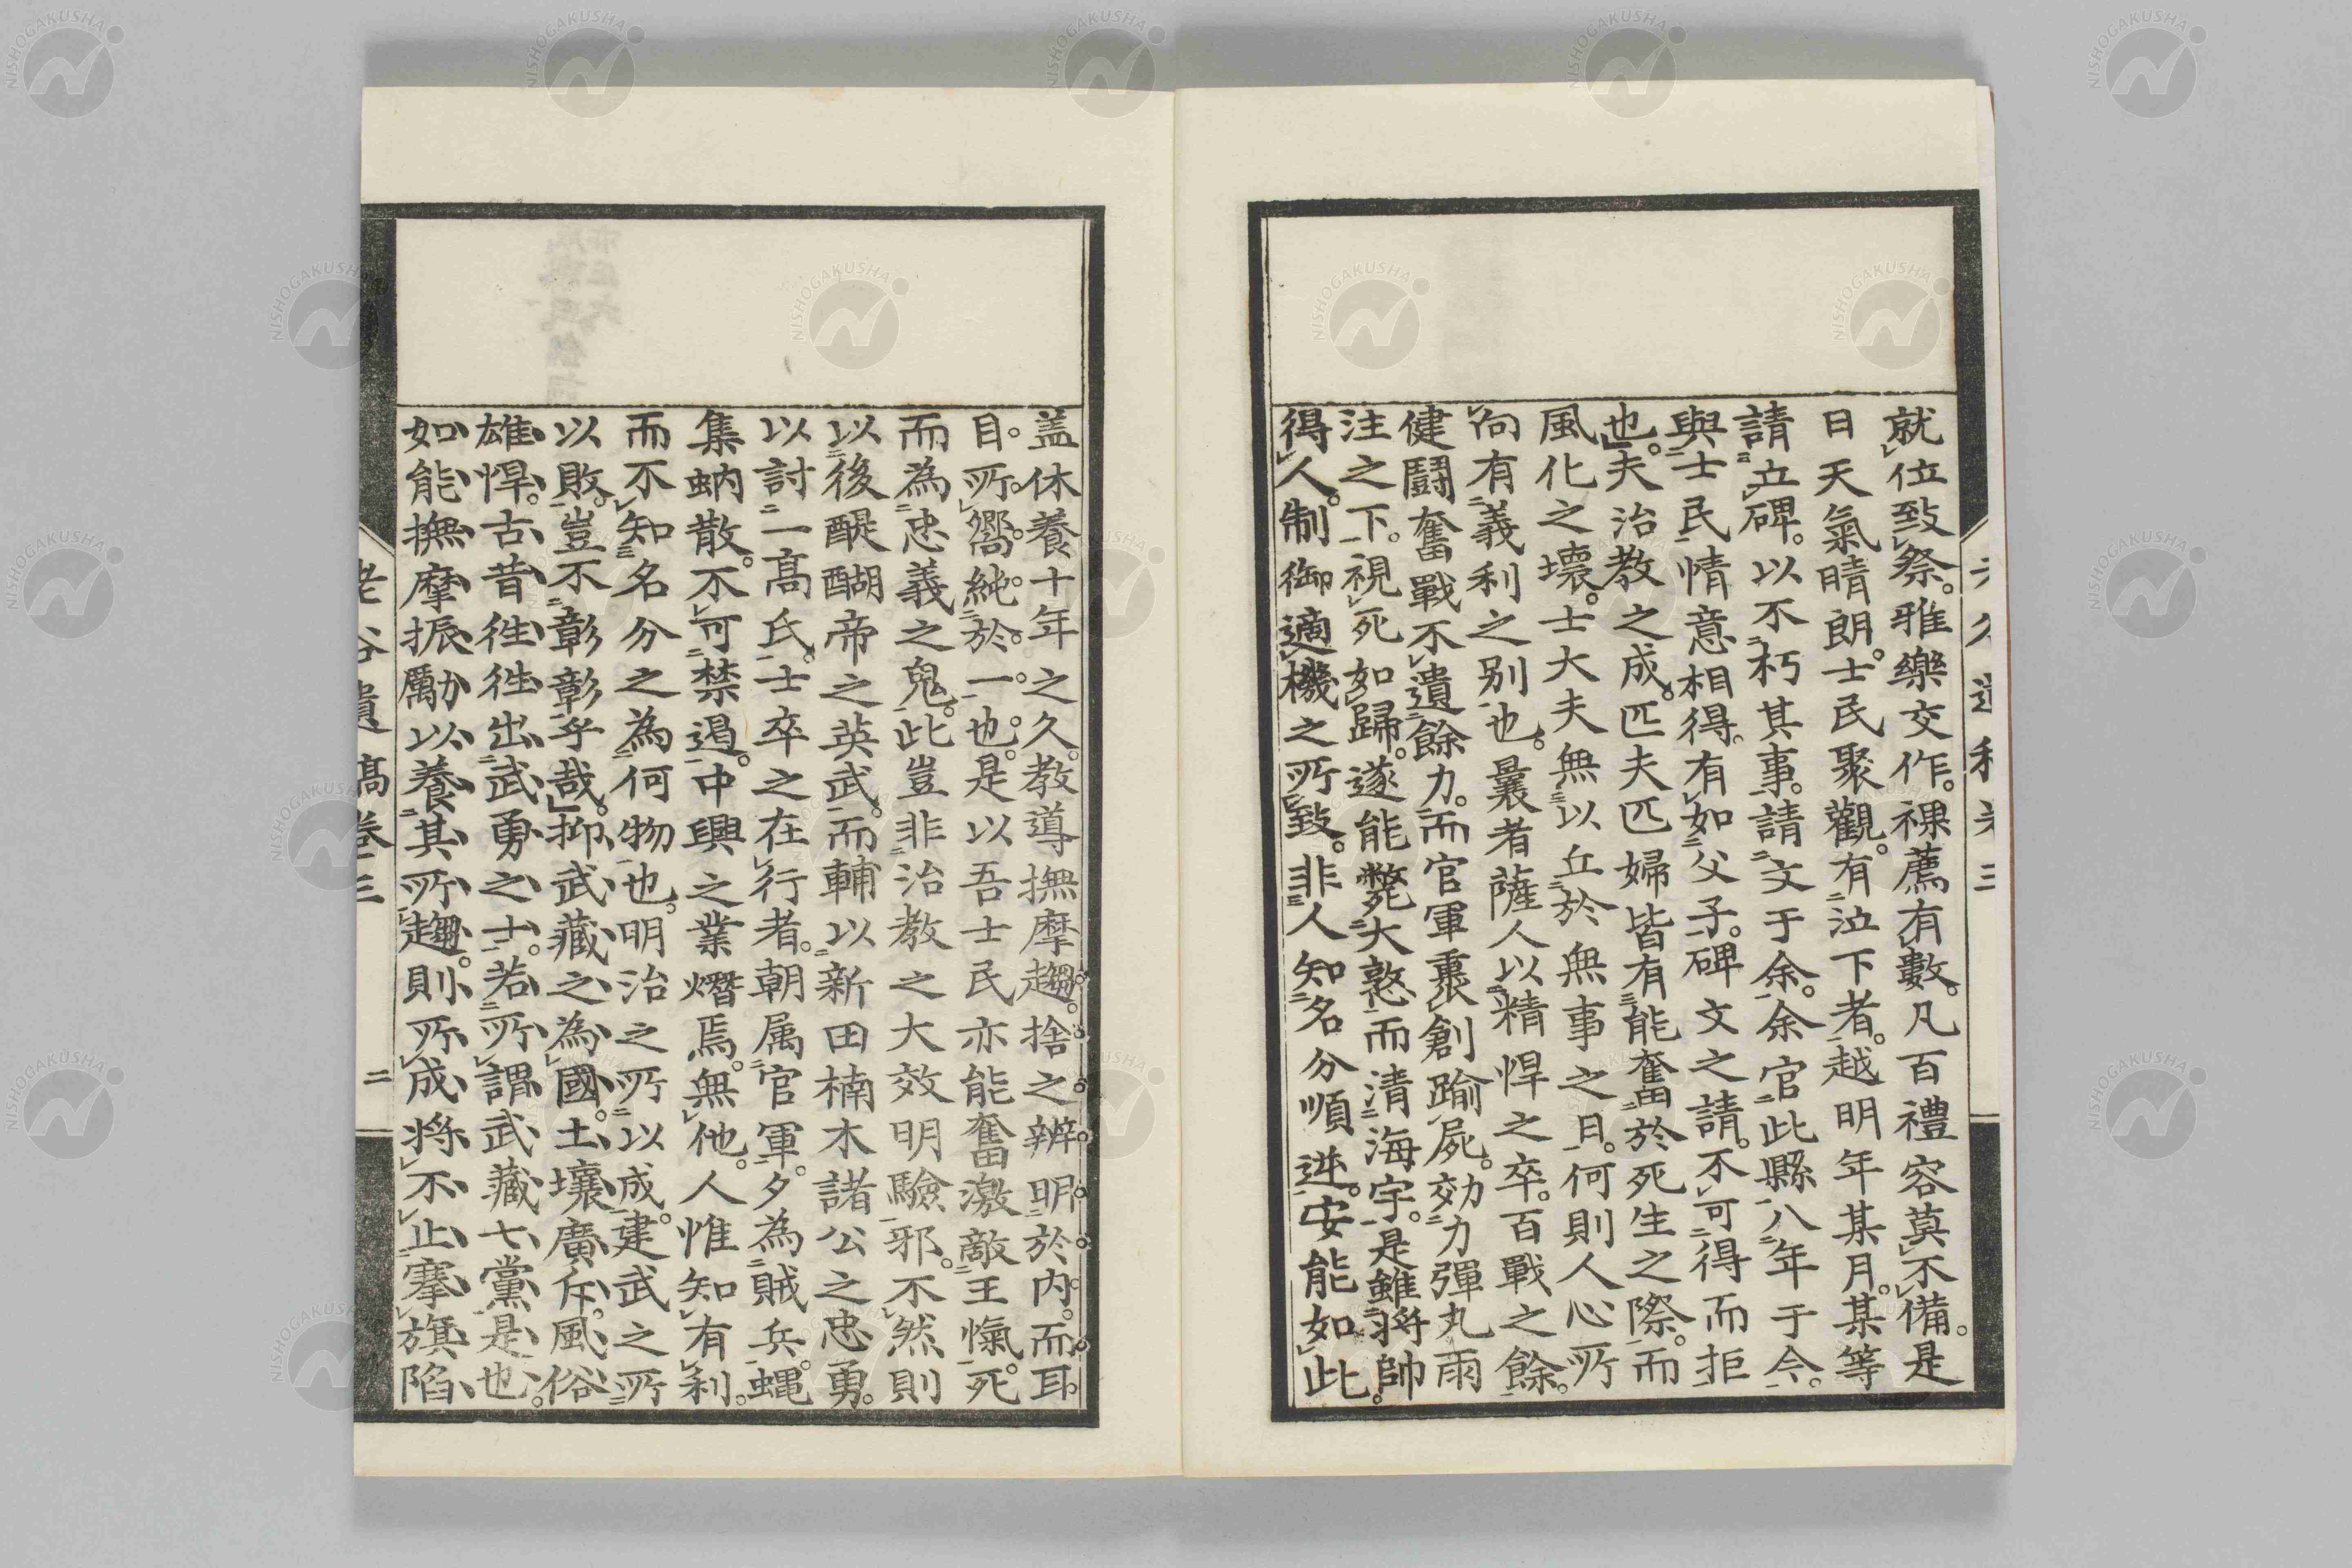 就位致祭。雅樂交作。祼薦有數。凡百禮容莫不備。是
日天氣晴朗。士民聚觀。有泣下者。越明年某月。某等
請立碑。以不朽其事。請文于余。余官此縣八年于今。
與士民情意相得。有如父子。碑文之請。不可得而拒
也。夫治教之成。匹夫匹婦皆有能奮於死生之際。而
風化之壞。士大夫無以立於無事之日。何則人心所
向有義利之別也。曩者薩人以精悍之卒。百戰之餘。
健鬪奮戰不遺餘力。而官軍裹創踰屍。効力彈丸雨
注之下。視死如歸。遂能斃大憝而清海宇。是雖將帥
得人。制御適機之所致。非人知名分順逆。安能如此。
蓋休養十年之久。教導撫摩。趨捨之辨。明於內。而耳
目所嚮。純於一也。是以吾士民亦能奮激敵王愾。死
而為忠義之鬼。此豈非治教之大效明驗邪。不然則
以後醍醐帝之英武。而輔以新田楠木諸公之忠勇。
以討一高氏。士卒之在行者。朝属官軍。夕為賊兵。蠅
集蚋散。不可禁遏。中興之業熸焉。無他。人惟知有利。
而不知名分之為何物也。明治之所以成。建武之所
以敗。豈不彰彰乎哉。抑武藏之為國。土壤廣斥。風俗
雄悍。古昔徃徃出武勇之士。若所謂武藏七黨是也。
如能撫摩振勵以養其所趨。則所成將不止搴旗陷
老谷遺稿卷三
二